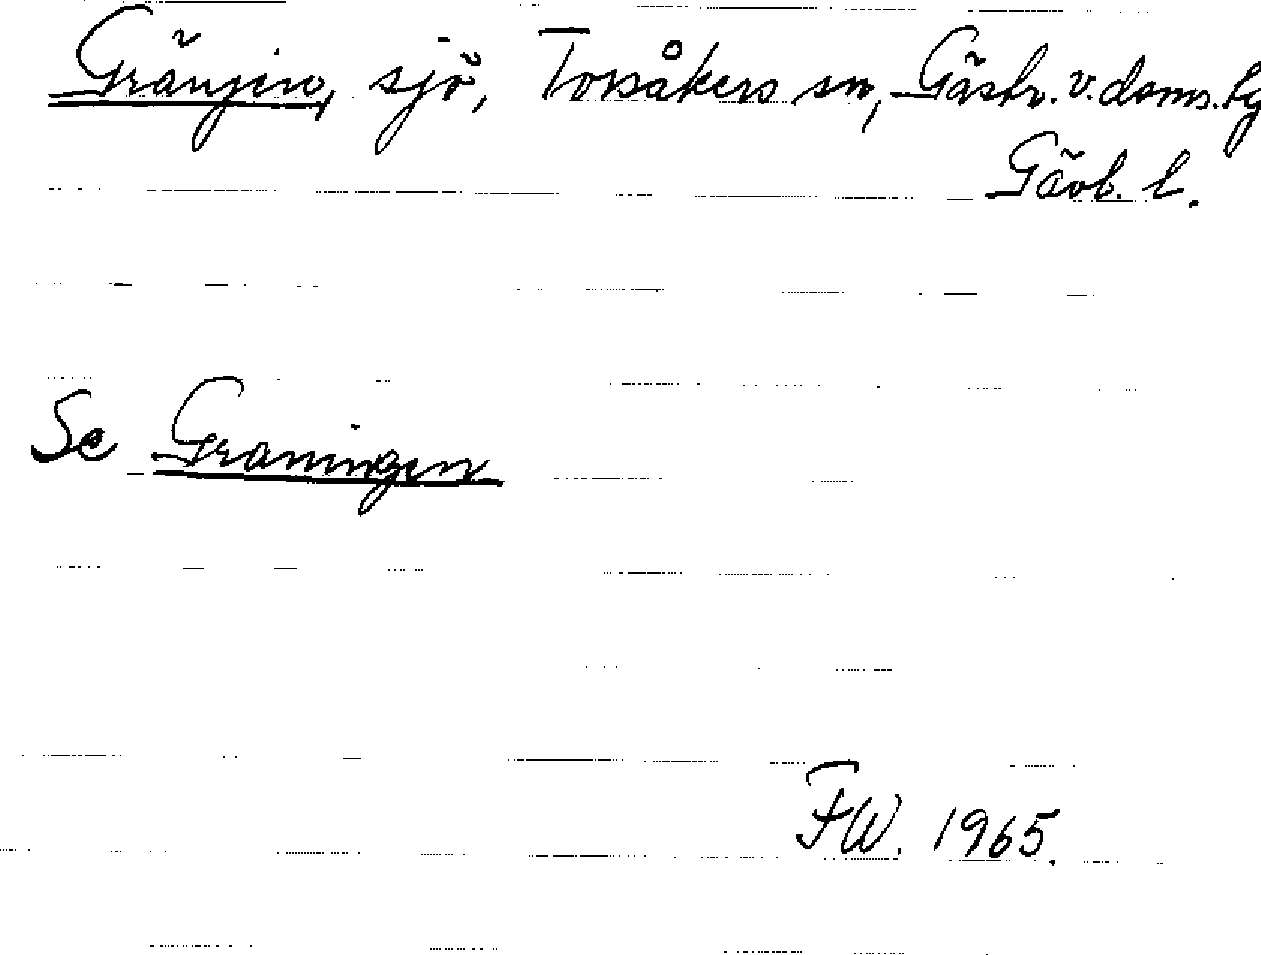 Grängin, sjö, Torsåkers sn, Gästr. v. doms. tg
Gävb. l.
Se Graningen
FW. 1965.